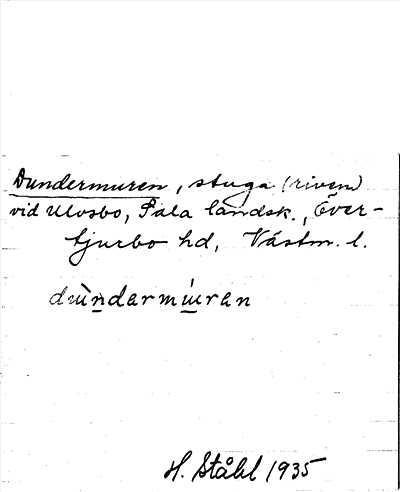 Dundermuren, stuga (riven)
vid Ulvsbo, Sala landsk., Över-
tjurbo hd, Västm. l.
dùndarmúran
H. Ståhl 1935